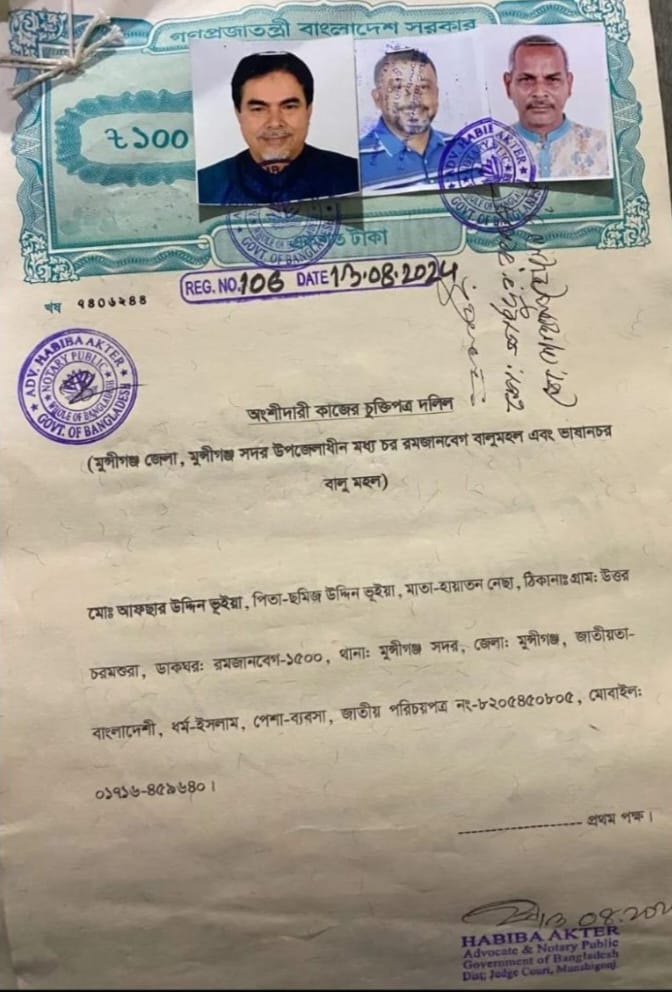 গণপ্রজাতন্ত্রী বাংলাদেশ সরকার
৳১০০
টাকা
ADV. HABIBA AKTER
NOTARY PUBLIC
WHOLE OF BANGLADESH
GOVT. OF BANGLADESH
REG. NO. 106 DATE 13.08.2024
খষ ৭৪০৬২৪৪
ADV. HABIBA AKTER
NOTARY PUBLIC
WHOLE OF BANGLADESH
GOVT. OF BANGLADESH
অংশীদারী কাজের চুক্তিপত্র দলিল
(মুন্সীগঞ্জ জেলা, মুন্সীগঞ্জ সদর উপজেলাধীন মধ্য চর রমজানবেগ বালুমহল এবং ভাষানচর
বালু মহল)
মোঃ আফছার উদ্দিন ভূইয়া, পিতা-ছমিজ উদ্দিন ভূইয়া, মাতা-হায়াতন নেছা, ঠিকানাঃ গ্রাম: উত্তর
চরমশুরা, ডাকঘর: রমজানবেগ-১৫০০, থানা: মুন্সীগঞ্জ সদর, জেলা: মুন্সীগঞ্জ, জাতীয়তা-
বাংলাদেশী, ধর্ম-ইসলাম, পেশা-ব্যবসা, জাতীয় পরিচয়পত্র নং-৮২০৫৪৫০৮০৫, মোবাইল:
০১৭১৬-৪৫৯৬৪০।
প্রথম পক্ষ।
13.08.202
HABIBA AKTER
Advocate & Notary Public
Government of Bangladesh
Dist; Judge Court, Munshigonj